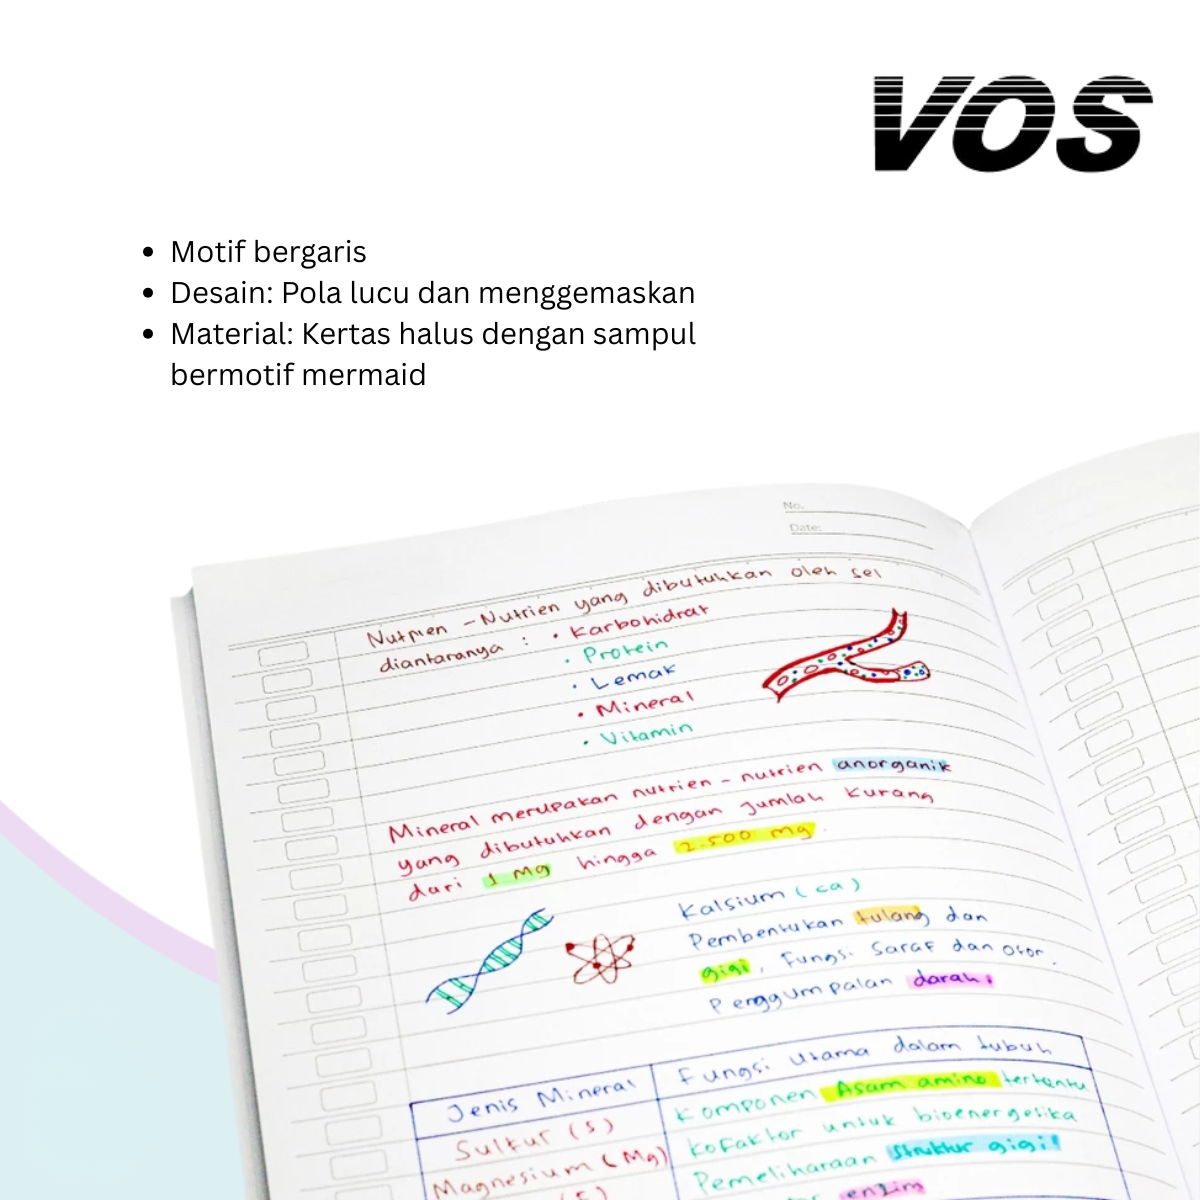 VOS
• Motif bergaris
• Desain: Pola lucu dan menggemaskan
• Material: Kertas halus dengan sampul
bermotif mermaid
No.
Date:
Nutrien - Nutrien yang dibutuhkan oleh sel
diantaranya : • Karbohidrat
• Protein
• Lemak
• Mineral
• Vitamin
Mineral merupakan nutrien - nutrien anorganik
yang dibutuhkan dengan jumlah kurang
dari 1 Mg hingga 2.500 mg.
Kalsium (ca)
Pembentukan tulang dan
gigi, Fungsi Saraf dan otor.
Penggumpalan darah
Jenis Mineral
Fungsi Utama dalam tubuh
Sulfur (S)
Komponen Asam amino tertentu
Magnesium (Mg)
Kofaktor untuk bioenergetika
Pemeliharaan Struktur gigi
enzim